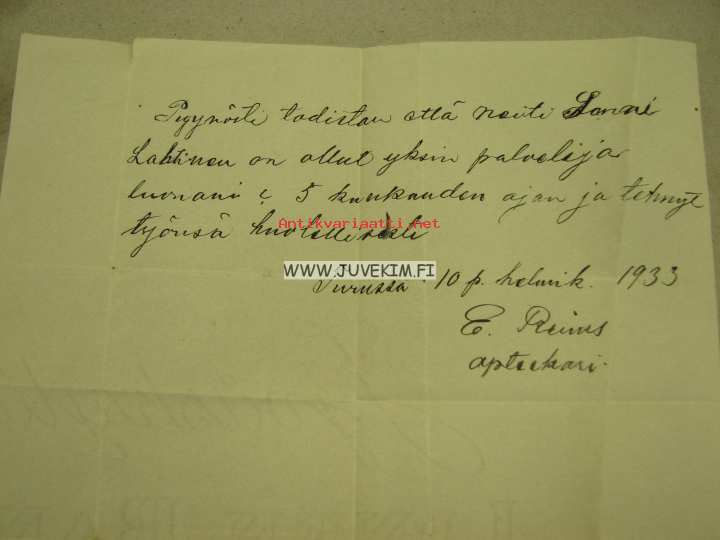 Pyynöste todistan että neiti Sanni
Lahtinen on ollut yksin palvelija
luonani 5 kuukauden ajan ja tehnyt
Antikvariaatti.net
työnsä huolellisesti
WWW.JUVEKIM.FI
Turussa 10 p. helmik. 1933
E. Reims
apteekari.